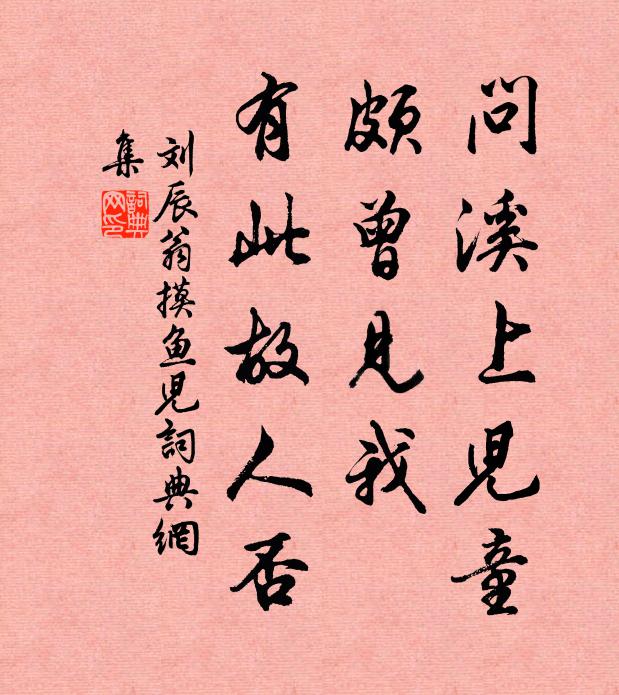 问溪上儿童
颇曾见我
有此故人否
刘辰翁摸鱼児詞典網
集
詞典
网印